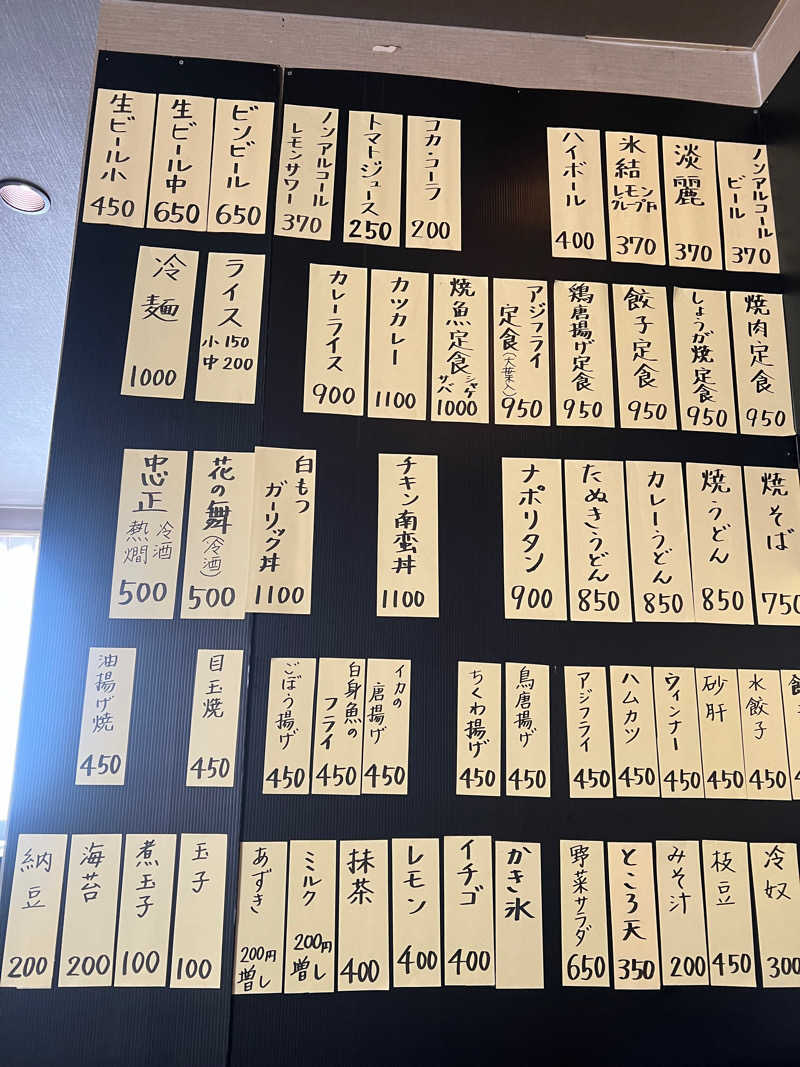 生ビール小
450
生ビール中
650
ビンビール
650
ノンアルコール
レモンサワー
370
トマトジュース
250
コカ・コーラ
200
ハイボール
400
氷結
レモン
370
淡麗
370
ノンアルコール
ビール
370
冷麺
1000
ライス
小 150
中 200
カレーライス
900
カツカレー
1100
焼魚定食
シャケ
サバ
1000
アジフライ
定食(大葉入)
950
鶏唐揚げ定食
950
餃子定食
950
しょうが焼定食
950
焼肉定食
950
忠正
冷酒
熱燗
500
花の舞
(冷酒)
500
白もつ
ガーリック丼
1100
チキン南蛮丼
1100
ナポリタン
900
たぬきうどん
850
カレーうどん
850
焼うどん
850
焼そば
750
油揚げ焼
450
目玉焼
450
ごぼう揚げ
450
白身魚の
フライ
450
イカの
唐揚げ
450
ちくわ揚げ
450
鳥唐揚げ
450
アジフライ
450
ハムカツ
450
ウィンナー
450
砂肝
450
水餃子
450
納豆
200
海苔
200
煮玉子
100
玉子
100
あずき
200円
増し
ミルク
200円
増し
抹茶
400
レモン
400
イチゴ
400
かき氷
野菜サラダ
650
ところ天
350
みそ汁
200
枝豆
450
冷奴
300